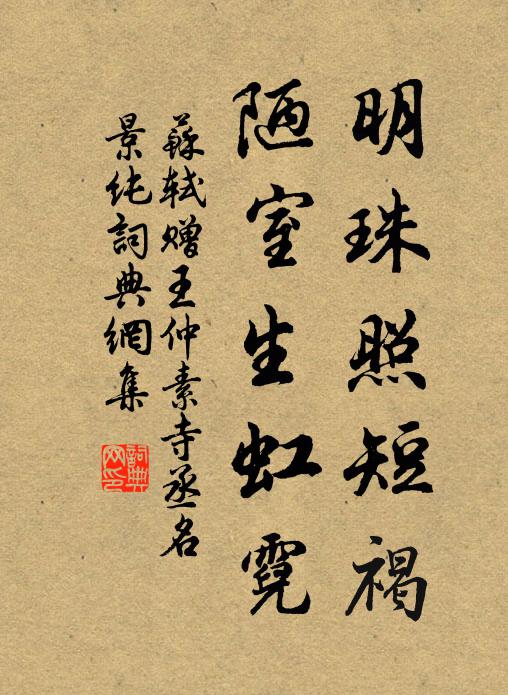 明珠照短褐
陋室生虹霓
蘇軾贈王仲素寺丞名
景純詞典網集
詞典
网印